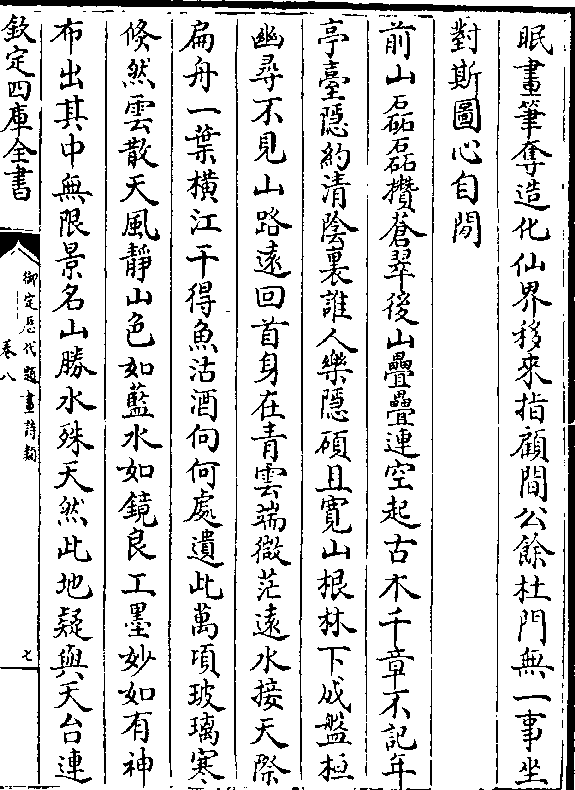 眠畫筆奪造化仙界移來指顧間公餘杜門無一事坐
對斯圖心自閒
前山磊磊攢蒼翠後山疊疊連空起古木千章不記年
亭臺隠約清隂裏誰人樂隠碩且寛山根林下成盤桓
幽尋不見山路遠回首身在青雲端微茫遠水接天際
扁舟一葉橫江干得魚沽酒向何處遺此萬頃玻璃寒
倐然雲散天風靜山色如藍水如鏡良工墨妙如有神
布出其中無限景名山勝水殊天然此地疑與天台連
欽定四庫全書
御定歴代題畫詩類
卷八
七